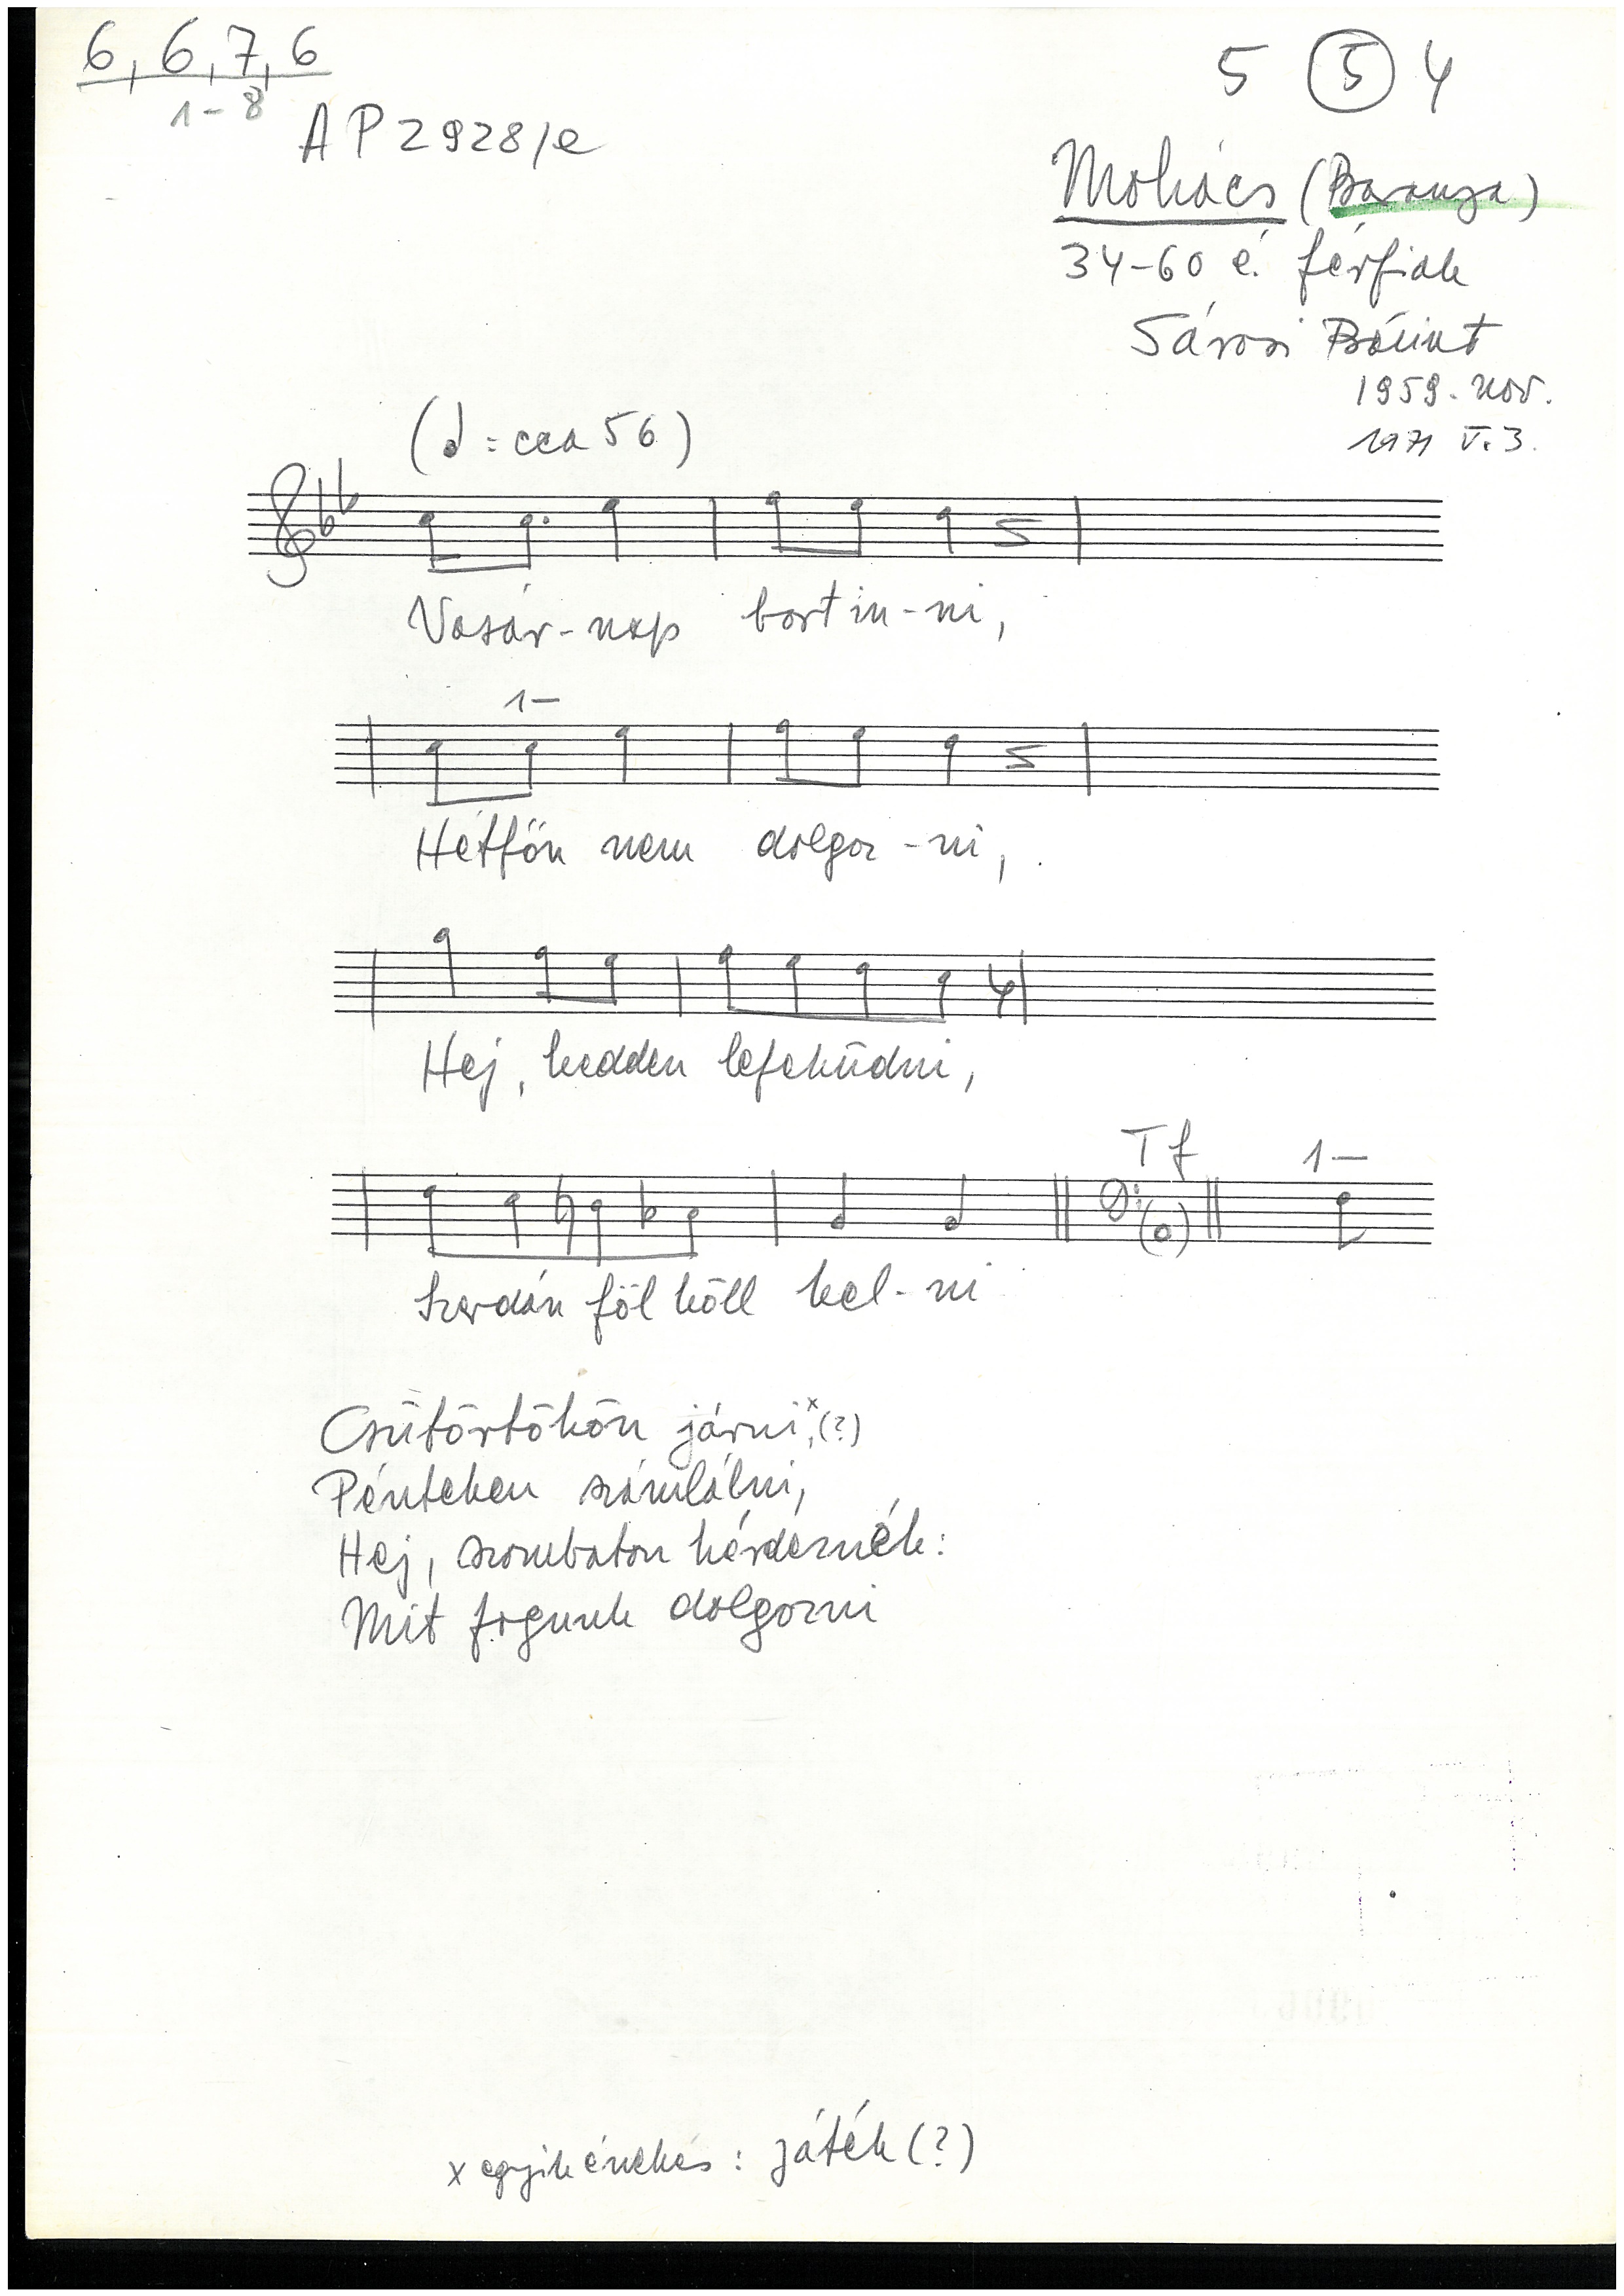 6, 6, 7, 6
1-8
AP 2928/e
5 5 4
Mohács (Baranya)
34-60 é. férfiak
Sárosi Bálint
1959. nov.
1971 V. 3.
(= cca 56)
Vasár-nap bort in-ni,
1-
Hétfőn nem dolgoz-ni,
Hej, kedden lefeküdni,
Tf
1-
Szerdán föl köll kel-ni
Csütörtökön járni,x(?)
Pénteken számlálni,
Hej, szombaton kérdeznék:
Mit fogunk dolgozni
x egyik énekes: játék(?)